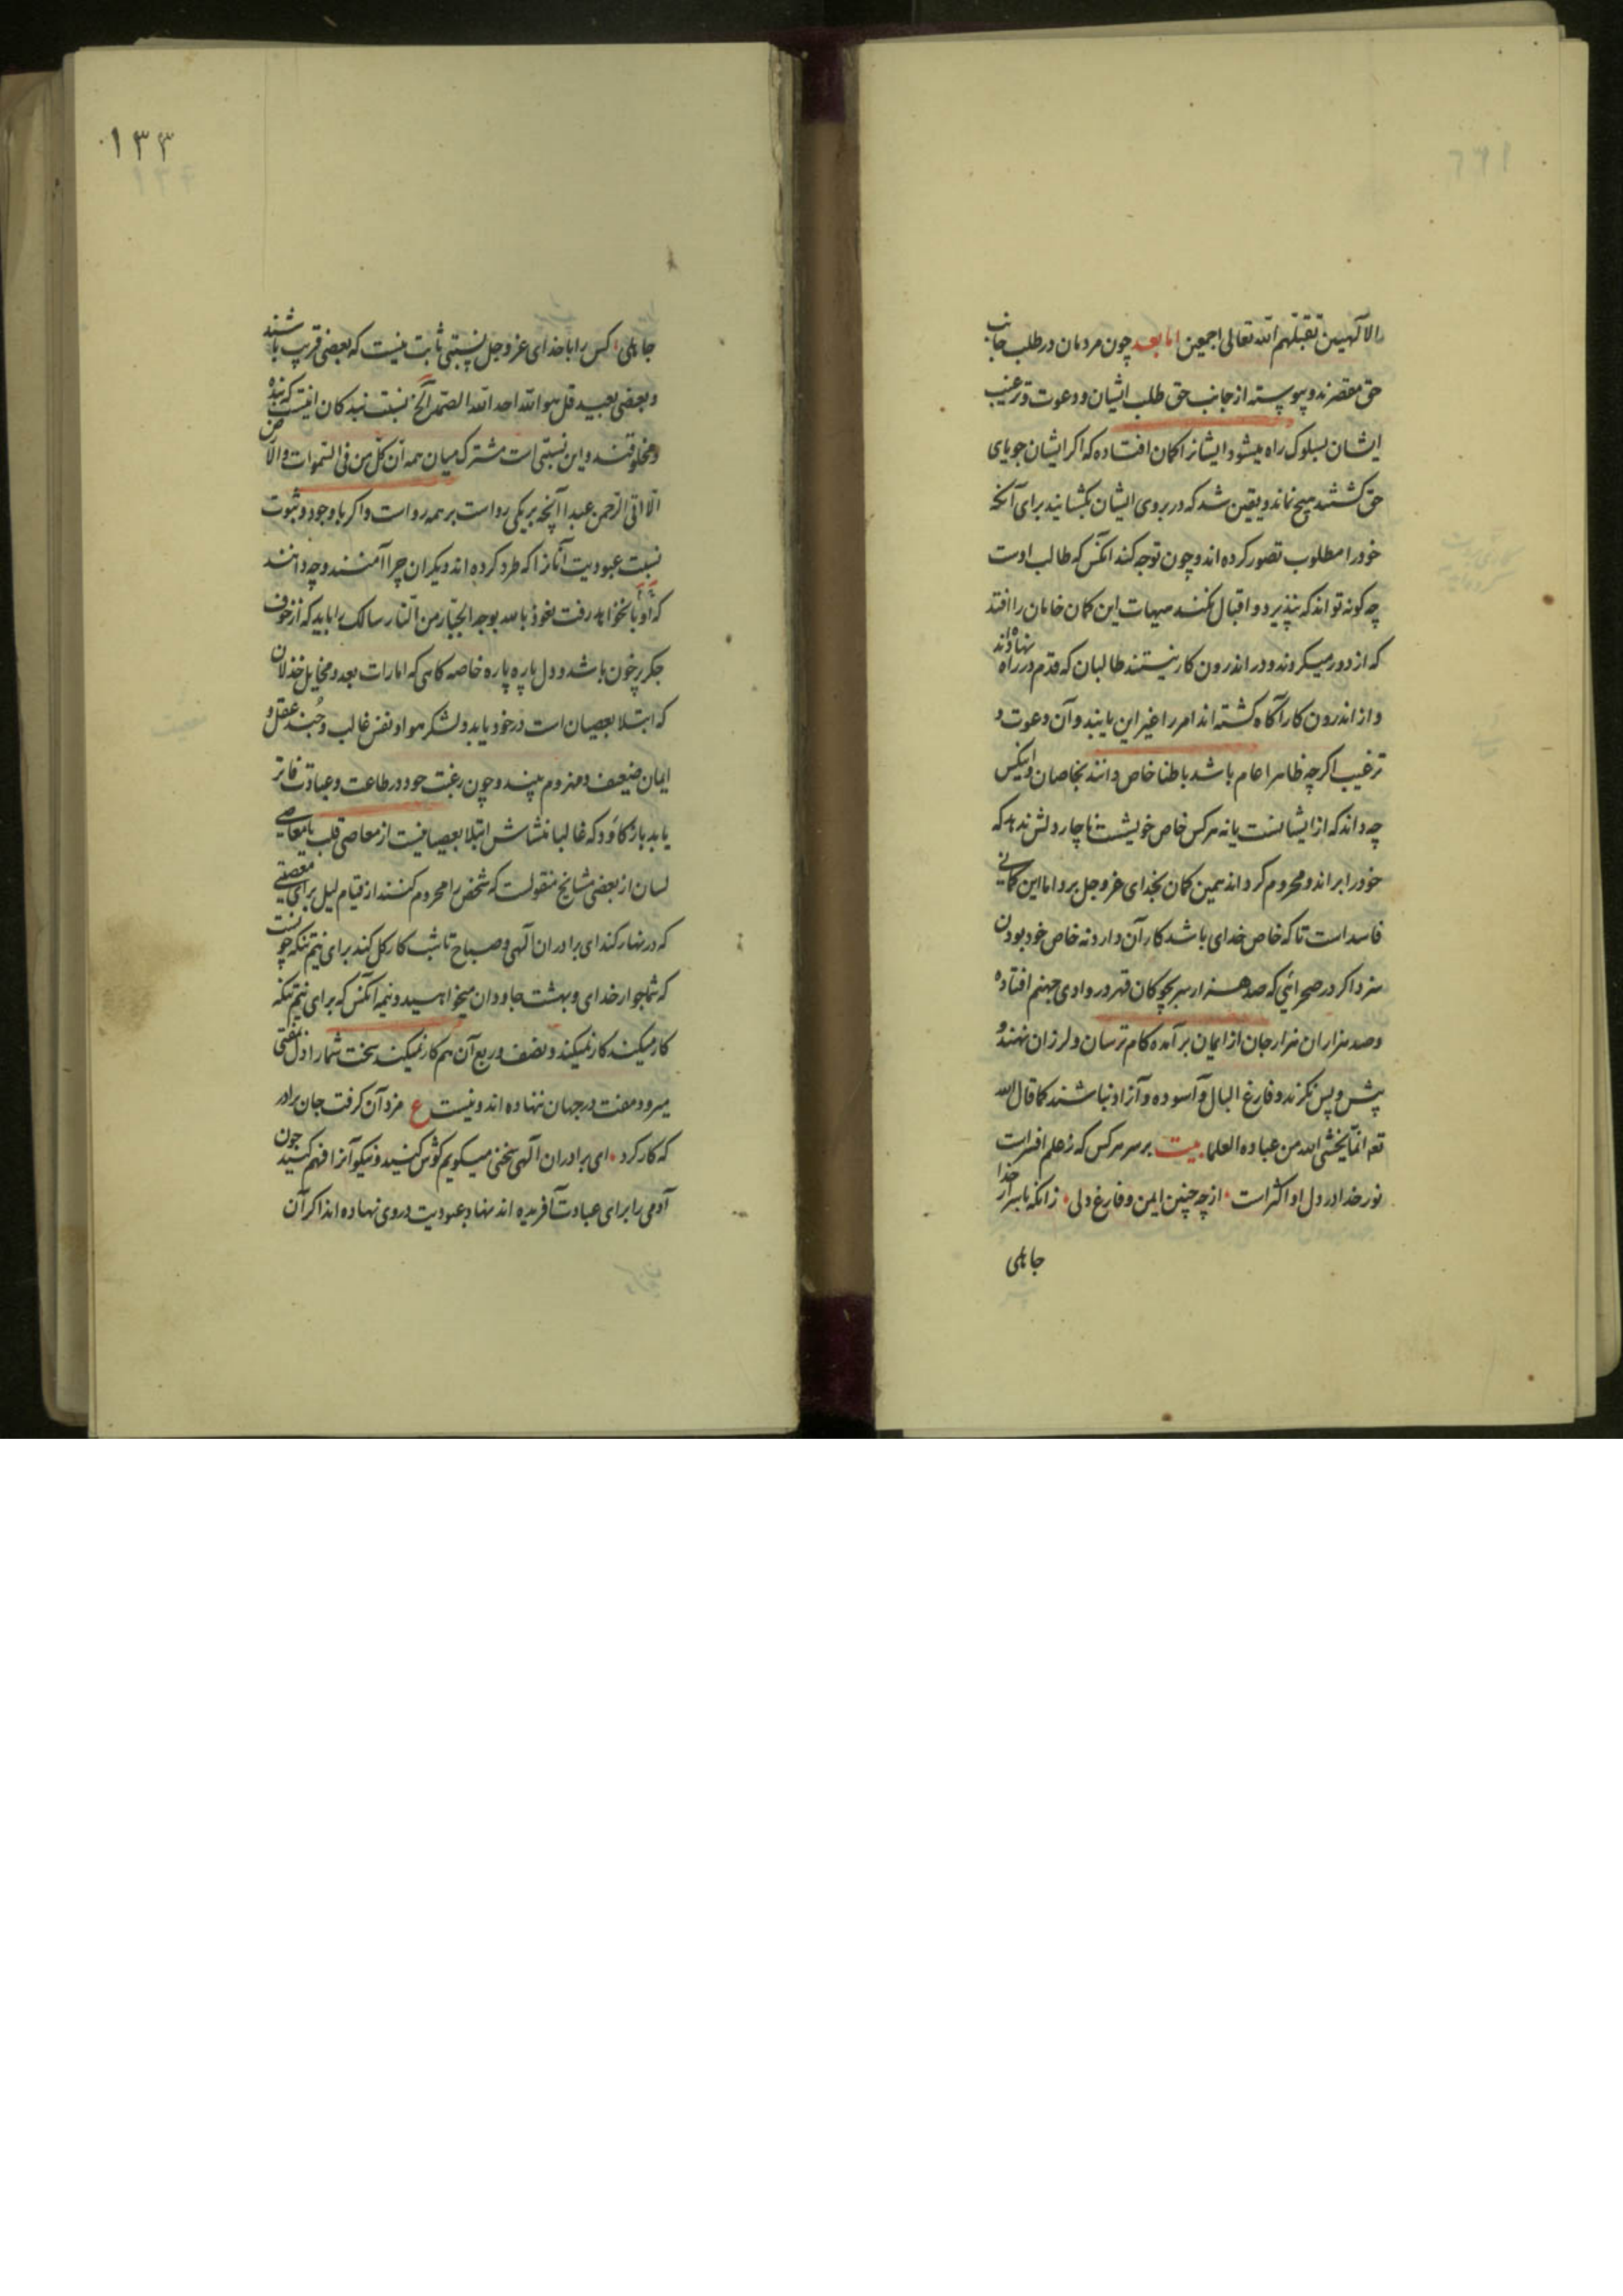 الالهیین تقبلهم الله تعالی اجمعین اما بعد چون مردمان در طلب جانب
حق مقصرند و پیوسته از جانب حق طلب ایشان و دعوت و ترغیب
ایشان بسلوک راه میشود ایشانرا کمان افتاده که اکر ایشان جویای
حق کشتند هیچ نماند و یقین شد که در بروی ایشان بکشایند برای آنکه
خود را مطلوب تصور کرده اند و چون توجه کند آنکس که طالب اوست
چه کونه تواند که نپذیرد و اقبال نکند هیهات این کمان خامان را افتد
که از دور میکروند و در اندرون کار نیستند طالبان که قدم در راه نهاده اند
و از اندرون کار آکاه کشته اند امر را غیر این یابند و آن دعوت و
ترغیب اکرچه ظاهرا عام باشد باطنا خاص دانند بخاصان و اینکس
چه داند که از ایشانست یا نه هر کس خاص خویشت ناچار دلش ندهد که
خود را براند و محروم کرداند همین کمان بخدای عز و جل برد اما این کمانی
فاسد است تا که خاص خدای باشد کار آن دارد نه خاص خود بودن
سزد اکر در صحرائی که صد هزار سر بچوکان قهر در وادی جهنم افتاده
و صد هزاران هزار جان از ایمان بر آمده کام ترسان و لرزان نهند و
پیش و پس نکرند و فارغ البال و آسوده و آزاد نباشند کما قال الله
تعه انما یخشی الله من عباده العلما بیت بر سر هر کس که ز علم افسر است
نور خدا در دل او اکثر است از چه چنین ایمن و فارغ دلی زانکه باسرار خدا
جاهلی
۱۳۳
جاهلی کس را با خدای عز و جل نسبتی ثابت نیست که بعضی قریب باشند
و بعضی بعید قل هو الله احد الله الصمد الخ نسبت بندکان اینست که بنده
و مخلوقند و این نسبتی است مشترک میان همه ان کل من فی السموات والارض
الا اتی الرحمن عبدا آنچه بر یکی رواست بر همه رواست و اکر با وجود و ثبوت
نسبت عبودیت آنانرا که طرد کرده اند دیکران چرا آمنند و چه دانند
که او با نخواهد رفت نعوذ بالله بوجه الجبار من النار سالک را باید که از خوف
جکر پر خون باشد و دل پاره پاره خاصه کاهی که امارات بعد و مخایل خذلان
که ابتلا بعصیان است در خود یابد و لشکر هوا و نفس غالب و جند عقل و
ایمان ضعیف و منهزم بیند و چون رغبت خود در طاعت و عبادت فاتر
یابد باز کاود که غالبا منشاش ابتلا بعصیانیست از معاصی قلب یا معاصی
لسان از بعضی مشایخ منقولست که شخص را محروم کنند از قیام لیل برای معصیتی
که در نهار کند ای برادران الهی و صباح تا شب کار کل کند برای نیم تنکه چونست
که شما جوار خدای و بهشت جاودان میخواهید و نیمه آنکس که برای نیم تنکه
کار میکند کار نمیکنید و نصف و ربع آن هم کار نمیکنید سخت شما را دل بمفتی
میرود و مفت در جهان ننهاده اند و نیست ع مزد آن کرفت جان برادر
که کار کرد ای برادران الهی سخنی میکویم کوش کنید و نیکو آنرا فهم کنید چون
آدمی را برای عبادت آفریده اند نهاد عبودیت در وی نهاده اند اکر آن